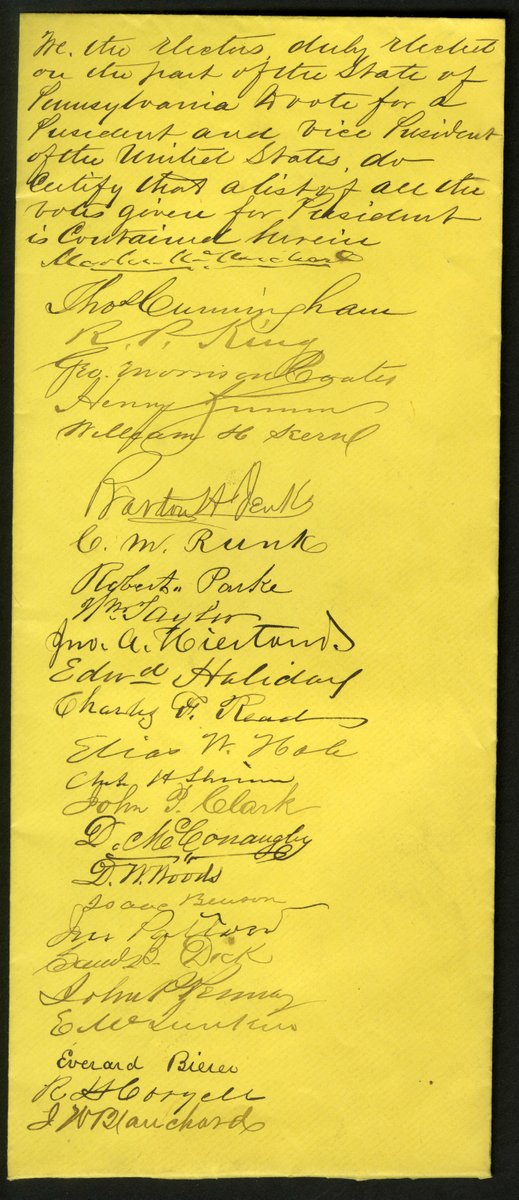 We, the electors, duly elected
on the part of the State of
Pennsylvania to vote for a
President and Vice President
of the United States, do
certify that a list of all the
votes given for President
is Contained herein
Thos Cunningham
R. P. King
Geo. Morrison Coates
Henry Bumm
William H Kern
Barton H Jenks
C. M. Runk
Robert Parke
Wm Taylor
Jno. A. Hiestand
Edwd Haliday
Charles F. Read
Elias W. Hale
H Shriner
John P. Clark
D. McConaughy
D. W. Woods
Isaac Benson
Jno Patton
Saml B. Dick
John P. Penney
E McJunkin
Everard Bierer
R H Coryell
J W Blanchard